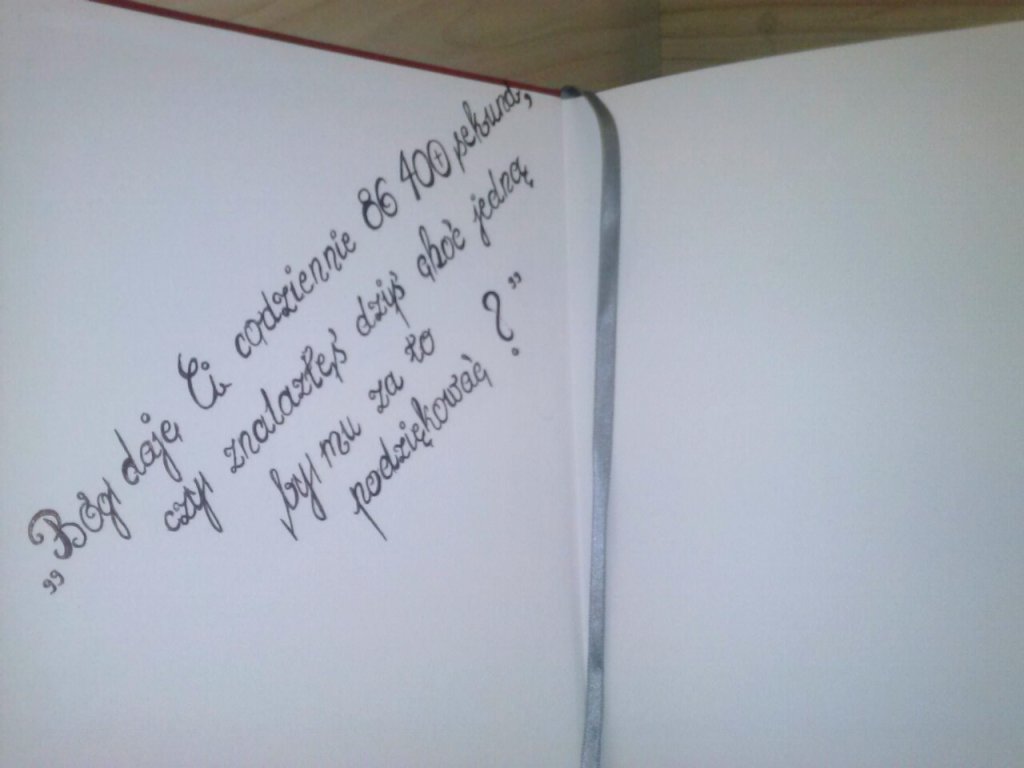 „Bóg daje Ci codziennie 86 400 sekund,
czy znalazłeś dziś choć jedną
by mu za to
podziękować?”